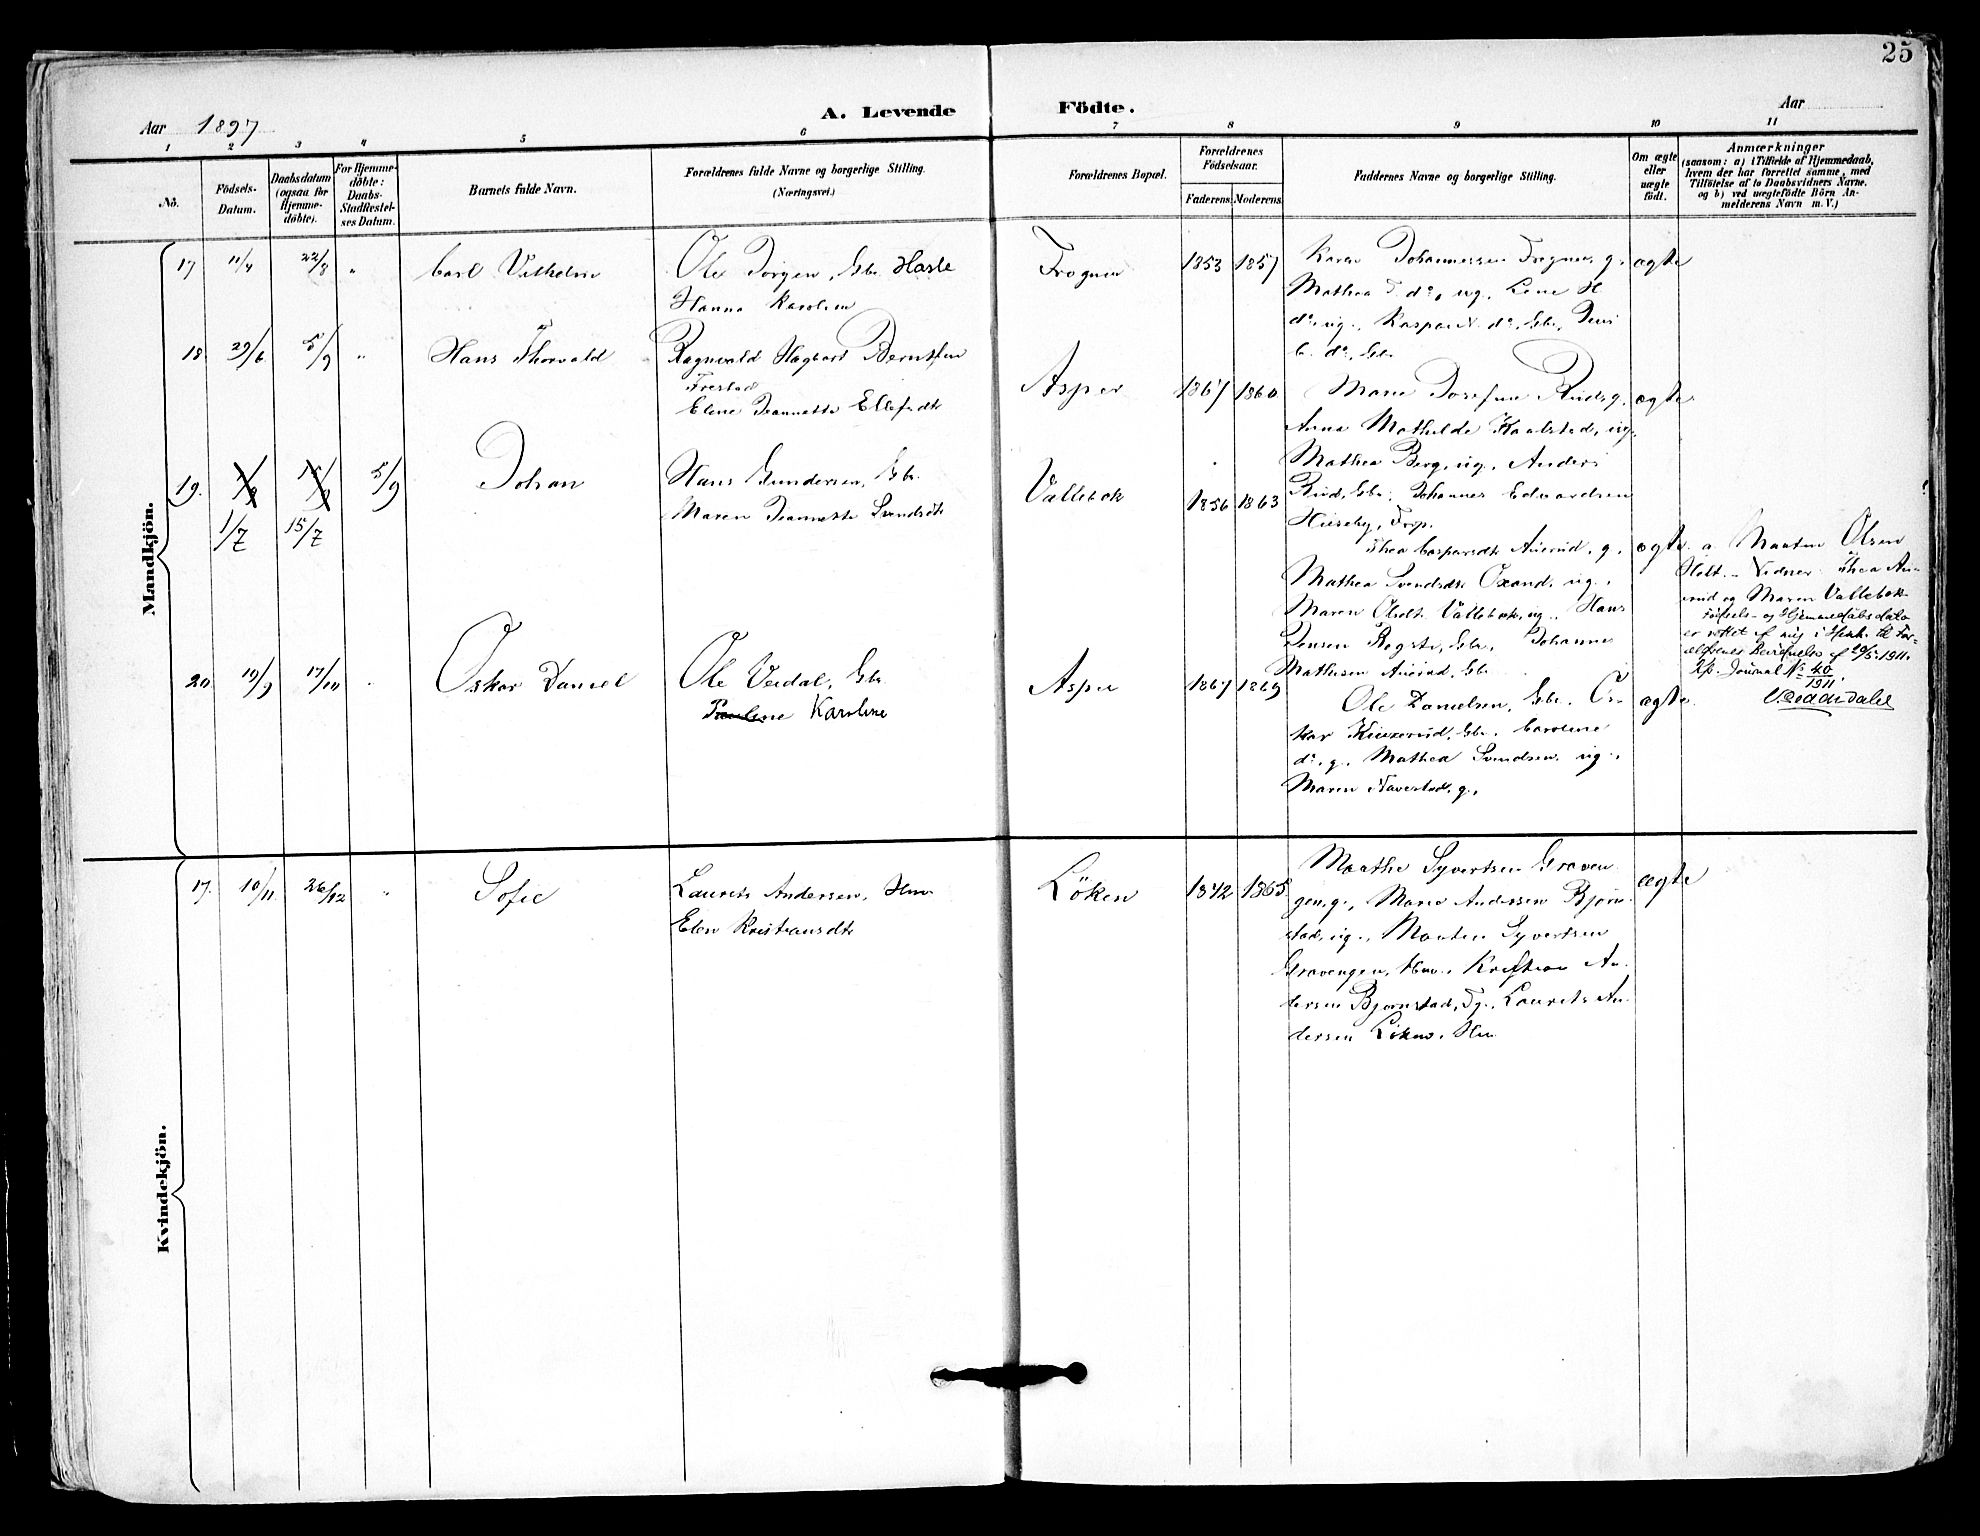 25
A. Levende Födte.
Aar 1897
Aar
1 2 3 4 5 6 7 8 9 10 11
No.
Födsels-Datum.
Daabsdatum (ogsaa for Hjemme-döbte).
For Hjemme-döbte: Daabs-Stadfæstel-ses Datum.
Barnets fulde Navn.
Forældrenes fulde Navne og borgerlige Stilling.
(Næringsvei.)
Forældrenes Bopæl.
Forældrenes Födselsaar.
Faderens Moderens
Faddernes Navne og borgerlige Stilling.
Om ægte eller uægte födt.
Anmærkninger
(saasom: a) i Tilfælde af Hjemmedaab,
hvem der har forrettet samme, med
Tilföielse af to Daabsvidners Navne,
og b) ved uægtefödte Börn An-
melderens Navn m. V.)
Mandkjön.
17 11/4 22/8 " Carl Vilhelm
Ole Jörgen, Gbr. Hasle
Hanna Karolsen
Frogner 1853 1857
Karen Johannessen Frogner, g.
Mathea F. do, ug., Lene H.
do, ug., Kaspar N. do, Gbr., Jens
C. do, Gbr.
ægte
18. 29/6 5/9 " Hans Thorvald
Ragnvald Hagbart Berntsen
Frestad
Elene Jeannette Ellefsdtr
Asper 1867 1860
Marie Josefine Rud, g.
Anna Mathilde Kaalstad, ug.,
Mathea Berg, ug., Anders
Rud, Gbr., Johannes Edvardsen
Huseby, Frp.
ægte
19. 1/7 15/7 5/9 Johan
Hans Gundersen, Gbr.
Maren Jeannette Svendsdtr
Vallebæk 1856 1863
Thea Caspersdtr Auerud, g.,
Mathea Svendsdtr Oxand, ug.,
Maren Olsdtr Vallebæk, ug., Hans
Jensen Gbr., Johannes
Mathisen Auerud, Gbr.
ægte. a Martin Olsen
Holt. - Vidner: Thea Au-
erud og Maren Vallebæk.
Födsels- og Hjemmedaabsdato
er rettet af mig i Henh. til For-
ældrenes Beviidnelse af 20/5 1911.
Kp. Journal No 40/1911.
20 19/9 17/10 " Oskar Daniel
Ole Veidal, Gbr.
Pauline Karoline
Asper 1867 1869
Ole Danielsen, Gbr. Os-
kar Gbr. Caroline
do, g., Mathea Svendsen, ug.,
Maren Navestad, g.,
ægte.
Kvindekjön.
17. 10/11 26/12 " Sofie
Laurits Andersen, Hm.
Elen Kristiansdtr
Löken 1842 1865
Marthe Syvertsen Graven-
gen, g., Marie Andersen Björn-
stad, ug., Martin Syvertsen
Gravengen, Hm., Kristian An-
dersen Björnstad, Fg., Laurits An-
dersen Löken, Hm.
ægte